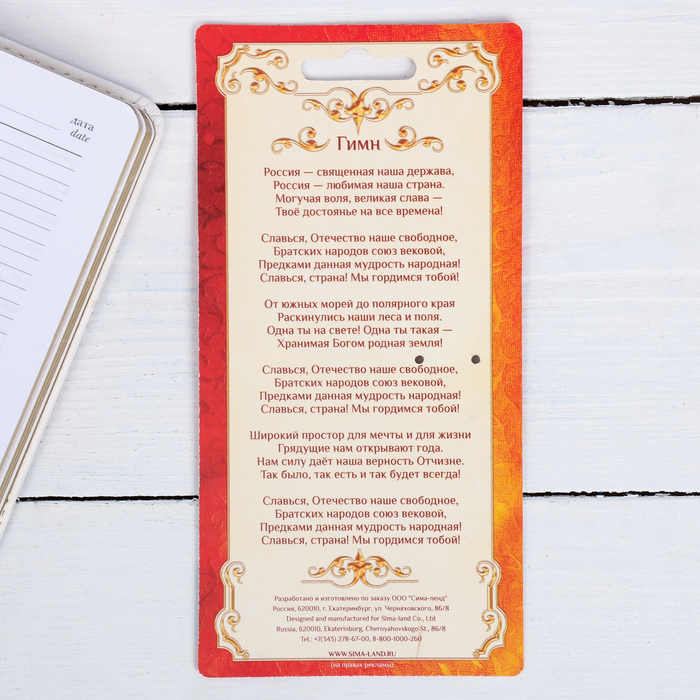 дата
date
Гимн
Россия — священная наша держава,
Россия — любимая наша страна.
Могучая воля, великая слава —
Твоё достоянье на все времена!
Славься, Отечество наше свободное,
Братских народов союз вековой,
Предками данная мудрость народная!
Славься, страна! Мы гордимся тобой!
От южных морей до полярного края
Раскинулись наши леса и поля.
Одна ты на свете! Одна ты такая —
Хранимая Богом родная земля!
Славься, Отечество наше свободное,
Братских народов союз вековой,
Предками данная мудрость народная!
Славься, страна! Мы гордимся тобой!
Широкий простор для мечты и для жизни
Грядущие нам открывают года.
Нам силу даёт наша верность Отчизне.
Так было, так есть и так будет всегда!
Славься, Отечество наше свободное,
Братских народов союз вековой,
Предками данная мудрость народная!
Славься, страна! Мы гордимся тобой!
Разработано и изготовлено по заказу ООО "Сима-ленд"
Россия, 620010, г. Екатеринбург, ул. Черняховского, 86/8
Designed and manufactured for Sima-land Co., Ltd
Russia, 620010, Ekaterinburg, Chernyahovskogo St., 86/8
Tel.: +7(343) 278-67-00, 8-800-1000-260
WWW.SIMA-LAND.RU
(на правах рекламы)